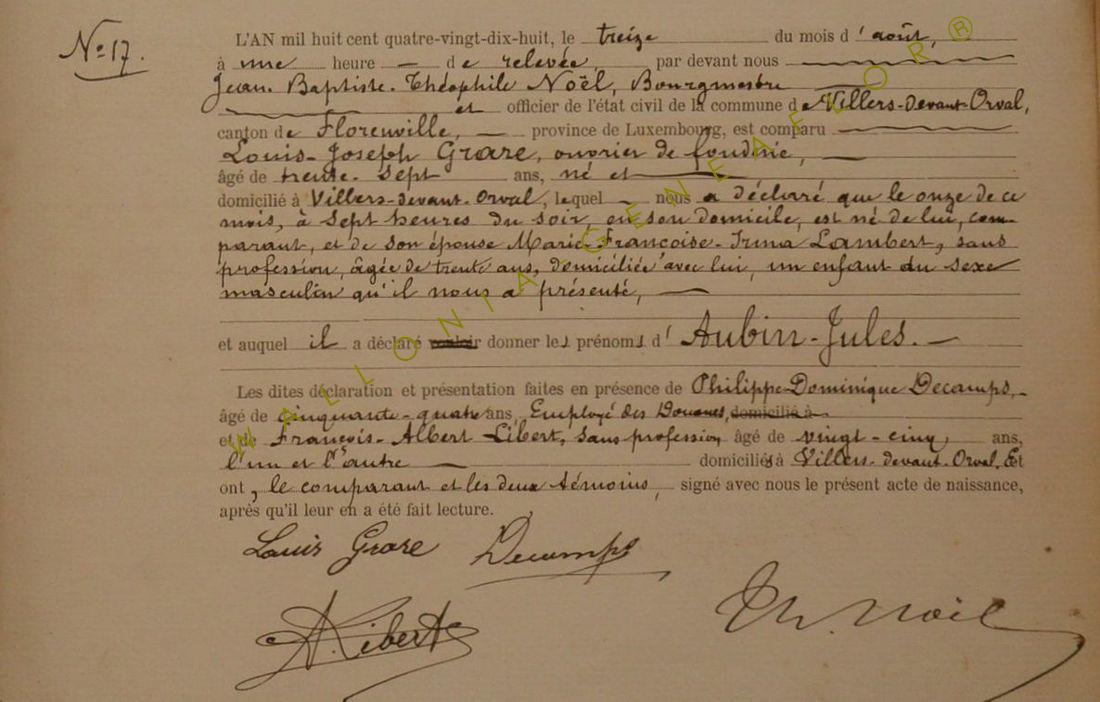 No 17.
L'AN mil huit cent quatre-vingt-dix-huit, le treize du mois d'août,
à une heure de relevée, par devant nous
Jean-Baptiste-Théophile Noël, Bourgmestre
et officier de l'état civil de la commune de Villers-devant-Orval,
canton de Florenville, province de Luxembourg, est comparu
Louis-Joseph Grare, ouvrier de fonderie,
âgé de trente-sept ans, né et
domicilié à Villers-devant-Orval, lequel nous a déclaré que le onze de ce
mois, à sept heures du soir, en son domicile, est né de lui, com-
parant, et de son épouse Marie-Françoise-Irma Lambert, sans
profession, âgée de trente ans, domiciliée avec lui, un enfant du sexe
masculin qu'il nous a présenté,
et auquel il a déclaré vouloir donner les prénoms d'Aubin-Jules.
Les dites déclaration et présentation faites en présence de Philippe-Dominique Decamps,
âgé de cinquante-quatre ans, Employé des Douanes, domicilié à
et de François-Albert Libert, sans profession, âgé de vingt-cinq ans,
l'un et l'autre domiciliés à Villers-devant-Orval. Et
ont, le comparant et les deux témoins, signé avec nous le présent acte de naissance,
après qu'il leur en a été fait lecture.
Louis Grare Decamps
A. Libert Th. Noël
WALLONIA-GENEAFLOR®